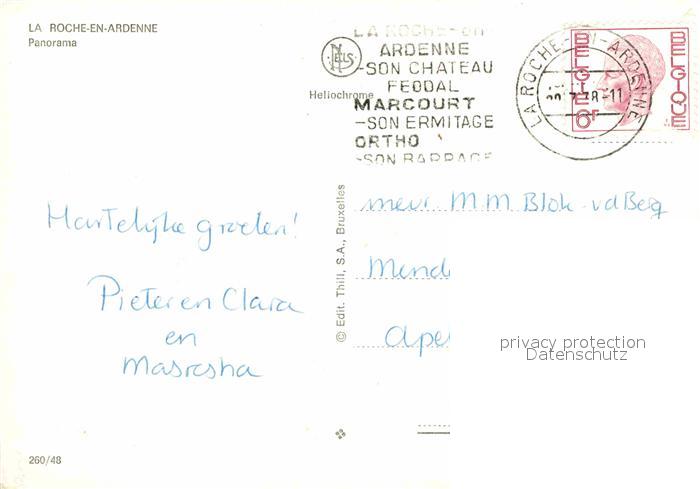 LA ROCHE-EN-ARDENNE
Panorama
NELS
Heliochrome
LA ROCHE-en
ARDENNE
-SON CHATEAU
FEODAL
MARCOURT
-SON ERMITAGE
ORTHO
-SON BARRAGE
LA ROCHE-EN-ARDENNE
78-11
BELGIE
BELGIQUE
6F
Hartelijke groeten!
Pieter en Clara
en
© Edit. Thill, S.A., Bruxelles
mevr. M M Blok-vdBerg
Mend
Apel
privacy protection
Datenschutz
260/48